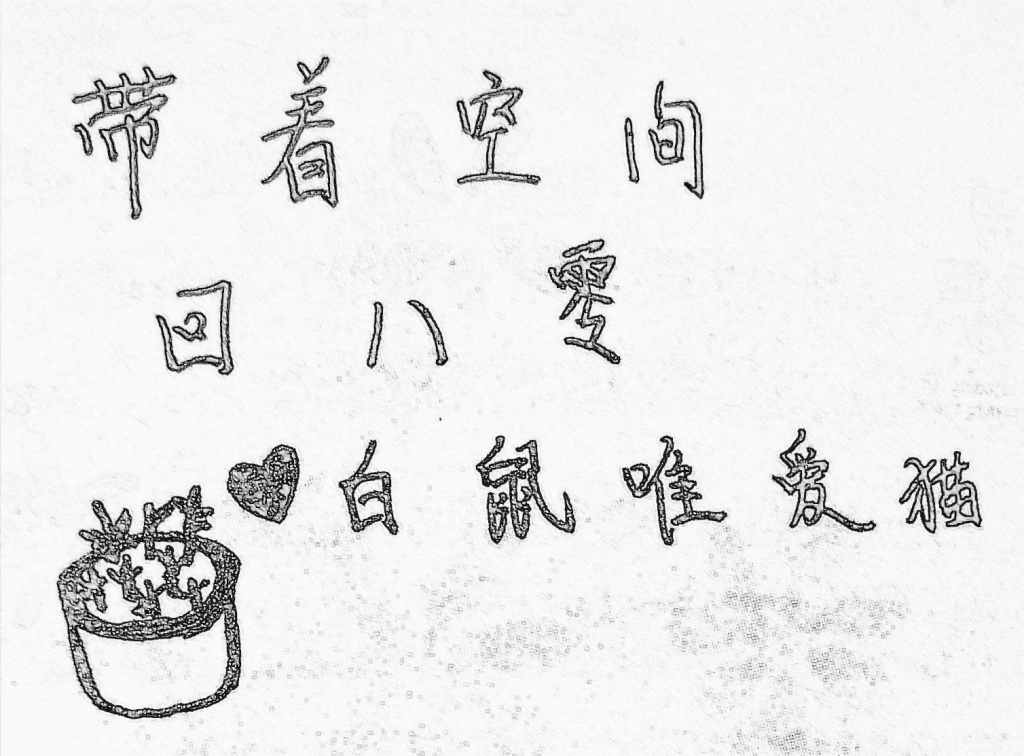 带着空间
回八零
白鼠唯爱猫